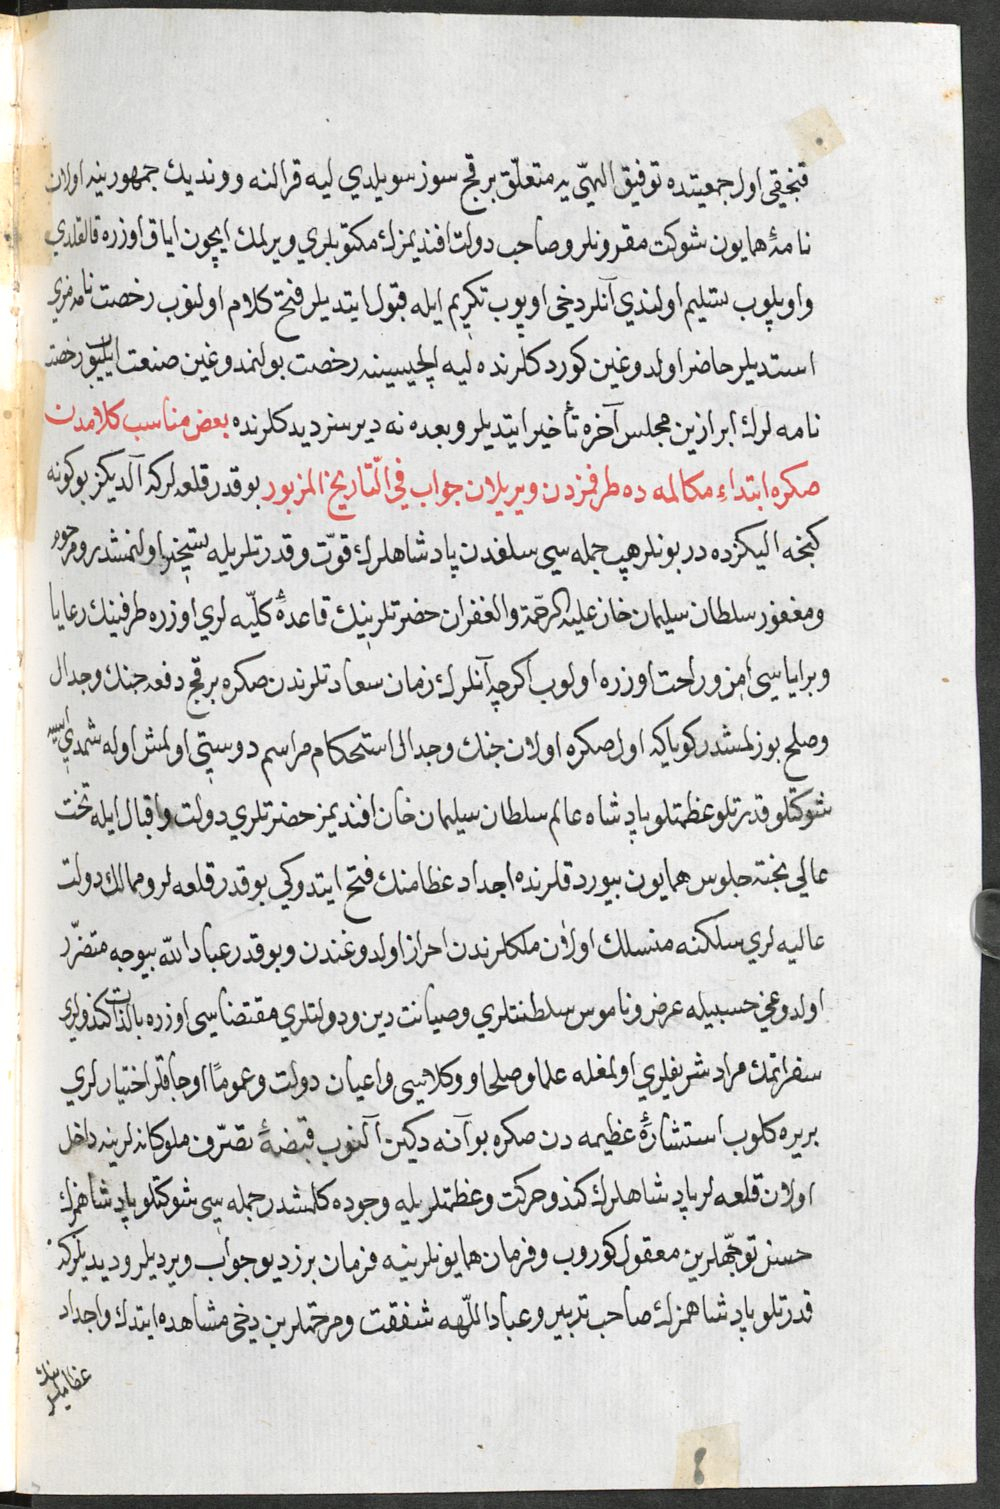 قنجیقی اول جمعیتده توفیق الهی یه متعلّق بر قچ سوز سویلدي لیه قرالنه و وندیك جمهورینه اولان
نامهٔ همایون شوکت مقرونلر و صاحب دولت افندیمزك مکتوبلري ویرلمك ایچون ایاق اوزره قالقلدي
و اوپلوب تسلیم اولندي آنلر دخی اوپوب تکریم ایله قبول ایتدیلر فتح کلام اولنوب رخصت نامه مزي
استدیلر حاضر اولدوغین کوردکلرنده لیه ایلچیسینه رخصت بولنمدوغین صنعت ایلیوب رخصت
نامه لرك ابرازین مجلس آخره تأخیر ایتدیلر و بعده نه دیرسز دیدکلرنده بعض مناسب کلامدن
صکره ابتداء مکالمه ده طرفمزدن ویریلان جواب في التّاریخ المزبور بو قدر قلعه لر که آلدیکز بوکونه
کنجه الیکزده در بونلر هپ جمله سی سلفدن پادشاهلرك قوّت و قدرتلریله تسخیر اولنمشدر و مرحوم
و مغفور سلطان سلیمان خان علیه الرحمة و الغفران حضرتلرینك قاعدهٔ کلّیه لري اوزره طرفینك رعایا
و برایاسی امن و راحت اوزره اولوب اکرچه آنلرك زمان سعادتلرندن صکره بر قچ دفعه جنك و جدال
و صلح بوزلمشدر کویا که اول صکره اولان جنك و جدال استحکام مراسم دوستی اولمش اوله شمدي ایسه
شوکتلو قدرتلو عظمتلو پادشاه عالم سلطان سلیمان خان افندیمز حضرتلري دولت و اقبال ایله تخت
عالي بختة جلوس همایون بیوردقلرنده اجداد عظامنك فتح ایتدوکي بو قدر قلعه لر و ممالك دولت
عالیه لري سلکنه منسلك اولان ملکلرندن احراز اولدوغندن و بو قدر عباد الله بیوجه متضرّر
اولدوغي حسبیله عرض و ناموس سلطنتلري و صیانت دین و دولتلري مقتضاسی اوزره بالذات کندولري
سفر اتمك مراد شریفلري اولمغله علما و صلحا و وکلاسی و اعیان دولت و عمومًا اوجاقلر اختیارلري
بر یره کلوب استشارهٔ عظیمه دن صکره بو آنه دکین آلنوب قبضهٔ تصرّف ملوکانه لرینه داخل
اولان قلعه لر پادشاهلرك کندو حرکت و عظمتلریله وجوده کلمشدر جمله سی شوکتلو پادشاهمزك
حسن توجّهلرین معقول کوروب و فرمان همایونلرینه فرمان برز دیو جواب ویردیلر و دیدیلر که
قدرتلو پادشاهمزك صاحب تدبیر و عباد اللّهه شفقت و مرحمتلرین دخی مشاهده ایتدك و اجداد
عظاملرینك